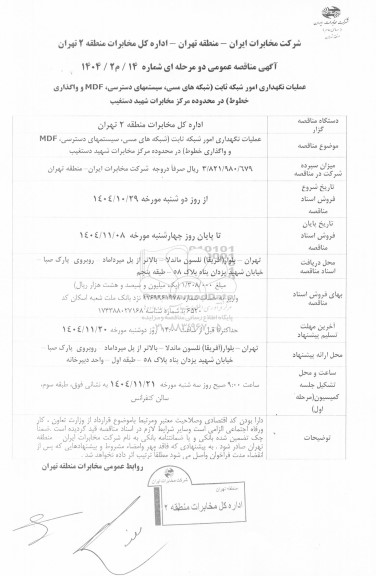 شرکت مخابرات ایران
شرکت مخابرات ایران – منطقه تهران – اداره کل مخابرات منطقه ۲ تهران
آگهی مناقصه عمومی دو مرحله ای شماره ۱۴ / م۲ / ۱۴۰۴
عملیات نگهداری امور شبکه ثابت (شبکه های مسی، سیستمهای دسترسی، MDF و واگذاری
خطوط) در محدوده مرکز مخابرات شهید دستغیب
دستگاه مناقصه گزار
اداره کل مخابرات منطقه ۲ تهران
موضوع مناقصه
عملیات نگهداری امور شبکه ثابت (شبکه های مسی، سیستمهای دسترسی، MDF
و واگذاری خطوط) در محدوده مرکز مخابرات شهید دستغیب
میزان سپرده شرکت در مناقصه
۳/۸۲۱/۹۸۰/۶۷۹ ریال صرفاً دروجه شرکت مخابرات ایران- منطقه تهران
تاریخ شروع فروش اسناد مناقصه
از روز دو شنبه مورخه ۱۴۰۴/۱۰/۲۹
تاریخ پایان فروش اسناد مناقصه
تا پایان روز چهارشنبه مورخه ۱۴۰۴/۱۱/۰۸
محل دریافت اسناد مناقصه
تهران – بلوار(آفریقا) نلسون ماندلا – بالاتر از پل میرداماد - روبروی پارک صبا –
خیابان شهید یزدان پناه پلاک ۵۸ – طبقه پنجم
بهای فروش اسناد مناقصه
مبلغ ۱/۳۰۸/۰۰۰ (یک میلیون و سیصد و هشت هزار ریال)
نزد بانک ملت شعبه اسکان کد
آخرین مهلت تسلیم پیشنهاد
روز دوشنبه مورخه ۱۴۰۴/۱۱/۲۰
محل ارائه پیشنهاد
تهران – بلوار(آفریقا) نلسون ماندلا – بالاتر از پل میرداماد - روبروی پارک صبا –
خیابان شهید یزدان پناه پلاک ۵۸ – طبقه اول – واحد دبیرخانه
ساعت و محل تشکیل جلسه کمیسیون(مرحله اول)
ساعت ۹:۰۰ صبح روز سه شنبه مورخه ۱۴۰۴/۱۱/۲۱ به نشانی فوق، طبقه سوم،
سالن کنفرانس
توضیحات
دارا بودن کد اقتصادی وصلاحیت معتبر ومرتبط باموضوع قرارداد از وزارت تعاون ، کار
ورفاه اجتماعی الزامی است وسایر شرایط لازم در اسناد مناقصه قید گردیده است .ضمنا
چک تضمین شده بانکی و یا ضمانتنامه بانکی به نام شرکت مخابرات ایران منطقه
تهران صادر شود . به پیشنهادی که فاقد مهر وامضاء مشروط و پیشنهادهایی که پس از
انقضاء مدت فراخوان واصل می شود مطلقاً ترتیب اثر داده نخواهد شد .
روابط عمومی مخابرات منطقه تهران
منطقه تهران
شرکت مخابرات ایران
اداره کل مخابرات منطقه ۲